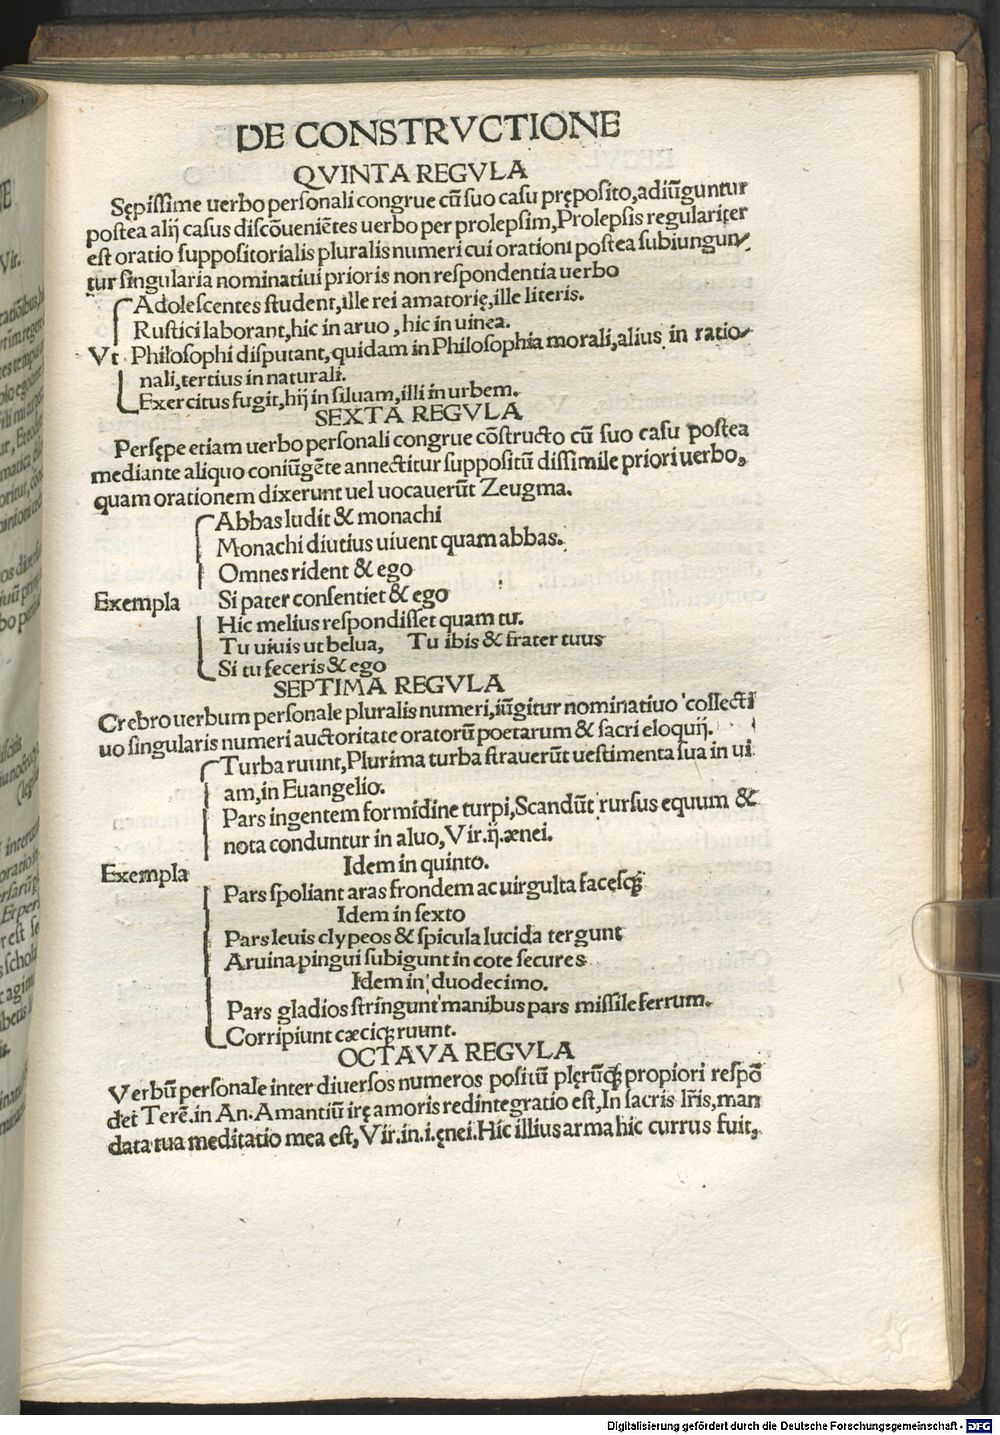 DE CONSTRVCTIONE
QVINTA REGVLA
Sępissime uerbo personali congrue cū suo casu pręposito, adiūguntur
postea alij casus discōueniētes uerbo per prolepsim, Prolepsis regulariter
est oratio suppositorialis pluralis numeri cui orationi postea subiungun/
tur singularia nominatiui prioris non respondentia uerbo
Adolescentes student, ille rei amatorię, ille literis.
Rustici laborant, hic in aruo, hic in uinea.
Vt Philosophi disputant, quidam in Philosophia morali, alius in ratio/
nali, tertius in naturali.
Exercitus fugit, hij in siluam, illi in urbem.
SEXTA REGVLA
Persępe etiam uerbo personali congrue cōstructo cū suo casu postea
mediante aliquo coniūgēte annectitur suppositū dissimile priori uerbo,
quam orationem dixerunt uel uocauerūt Zeugma.
Abbas ludit & monachi
Monachi diutius uiuent quam abbas.
Omnes rident & ego
Exempla Si pater consentiet & ego
Hic melius respondisset quam tu.
Tu uiuis ut belua, Tu ibis & frater tuus
Si tu feceris & ego
SEPTIMA REGVLA
Crebro uerbum personale pluralis numeri, iūgitur nominatiuo collecti
uo singularis numeri auctoritate oratorū poetarum & sacri eloquij.
Turba ruunt, Plurima turba strauerūt uestimenta sua in ui
am, in Euangelio.
Pars ingentem formidine turpi, Scandūt rursus equum &
nota conduntur in aluo, Vir. ij. ænei.
Idem in quinto.
Exempla
Pars spoliant aras frondem ac uirgulta facesqȝ
Idem in sexto
Pars leuis clypeos & spicula lucida tergunt
Aruina pingui subigunt in cote secures
Idem in duodecimo.
Pars gladios stringunt manibus pars missile ferrum.
Corripiunt cæciqȝ ruunt.
OCTAVA REGVLA
Verbū personale inter diuersos numeros positū plęrūqȝ propiori respō
det Terē. in An. Amantiū irę amoris redintegratio est, In sacris lr̄is, man
data tua meditatio mea est, Vir. in. i. ęnei. Hic illius arma hic currus fuit,
Digitalisierung gefördert durch die Deutsche Forschungsgemeinschaft - DFG